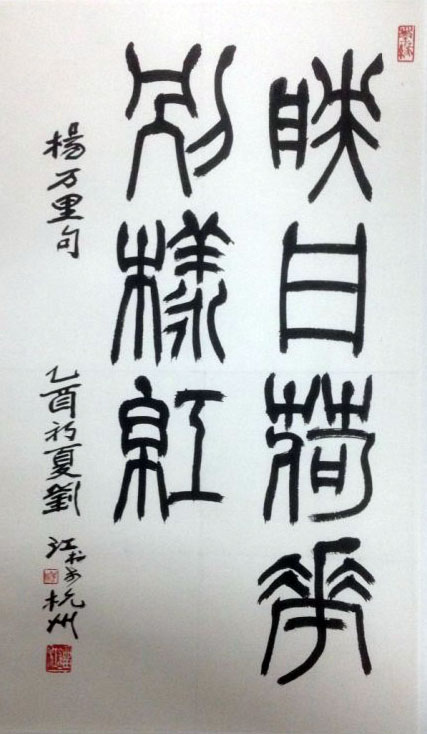 映日荷華
別樣紅
楊万里句
乙酉初夏劉江書於杭州